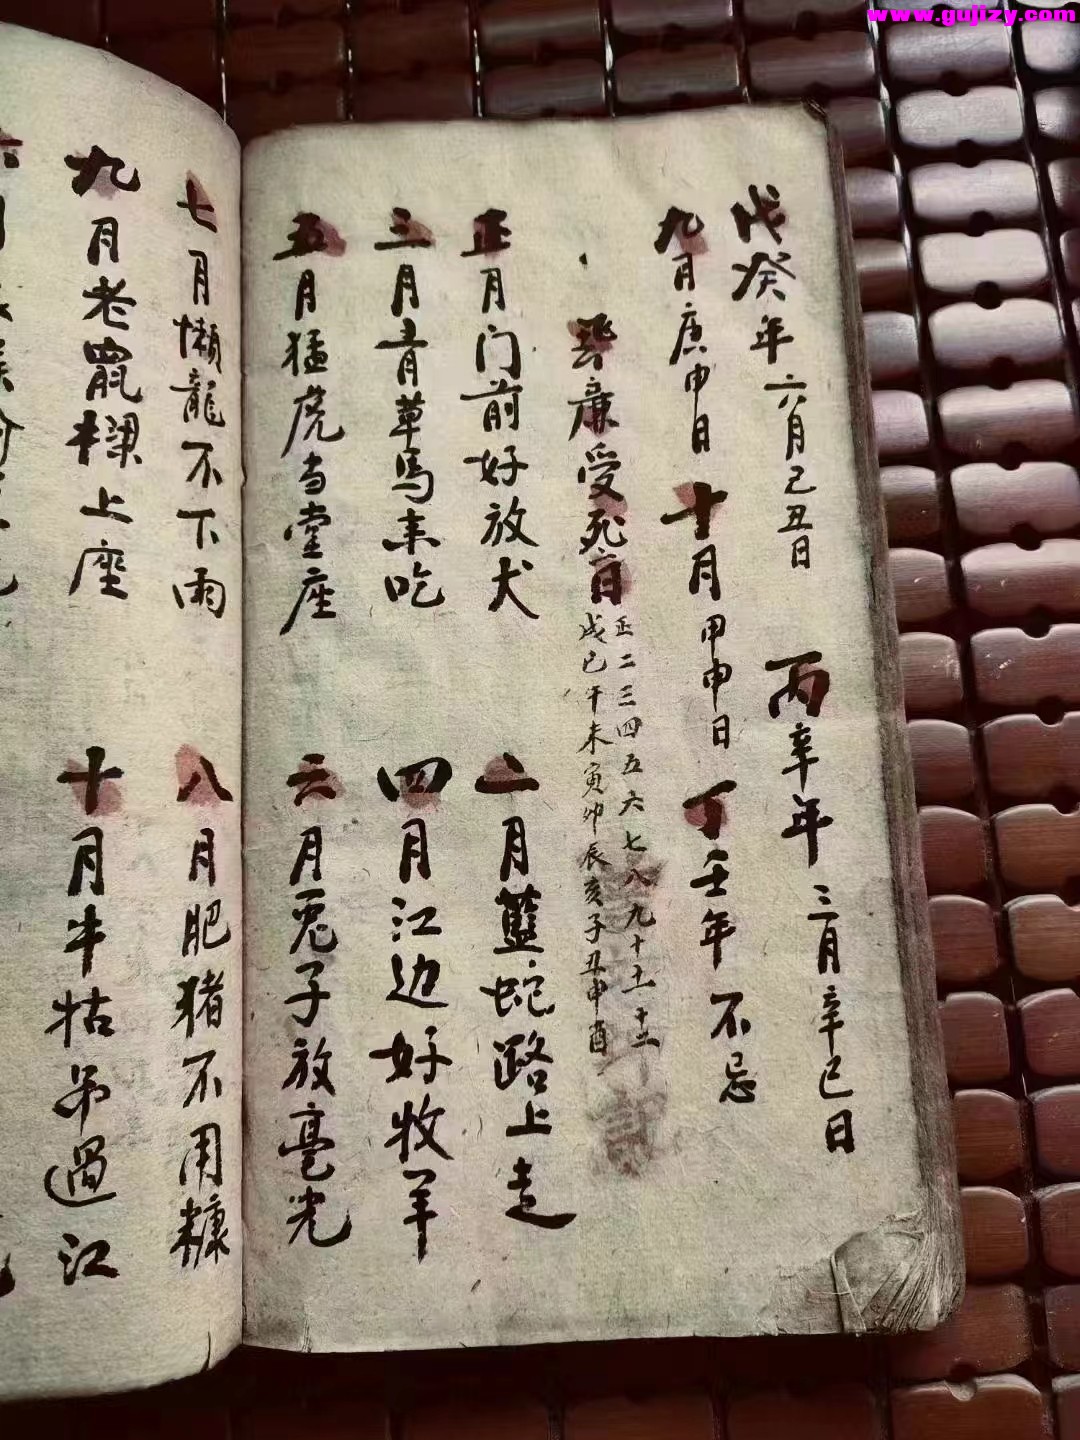 www.gujizy.com
戊癸年六月己丑日 丙辛年三月辛巳日
九月庚申日 十月甲申日 丁壬年不忌
飛廉受死日
正二三四五六七八九十十一十二
戌巳午未寅卯辰亥子丑申酉
正月门前好放犬 二月藍蛇路上走
三月青草馬来吃 四月江边好牧羊
五月猛虎当堂座 六月兎子放毫光
七月懒龍不下雨 八月肥猪不用糠
九月老鼠欄上座 十月牛牯吊過江